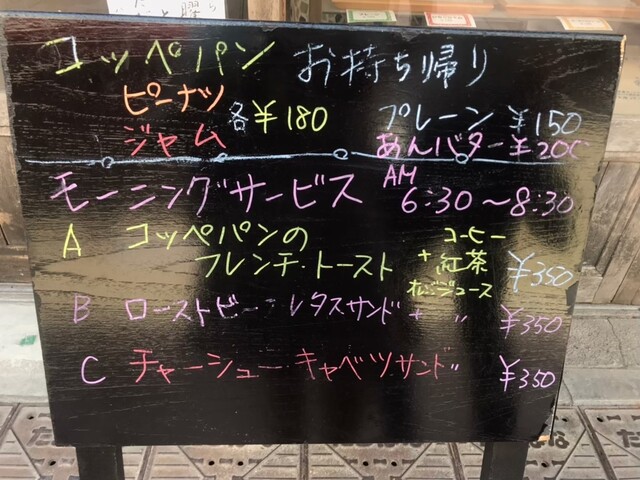 コッペパン お持ち帰り
ピーナツ
ジャム 各¥180
プレーン ¥150
あんバター¥200
モーニングサービス AM 6:30〜8:30
A コッペパンの
フレンチ・トースト + コーヒー 紅茶 オレンジジュース ¥350
B ローストビー レタスサンド + 〃 ¥350
C チャーシュー・キャベツサンド ¥350